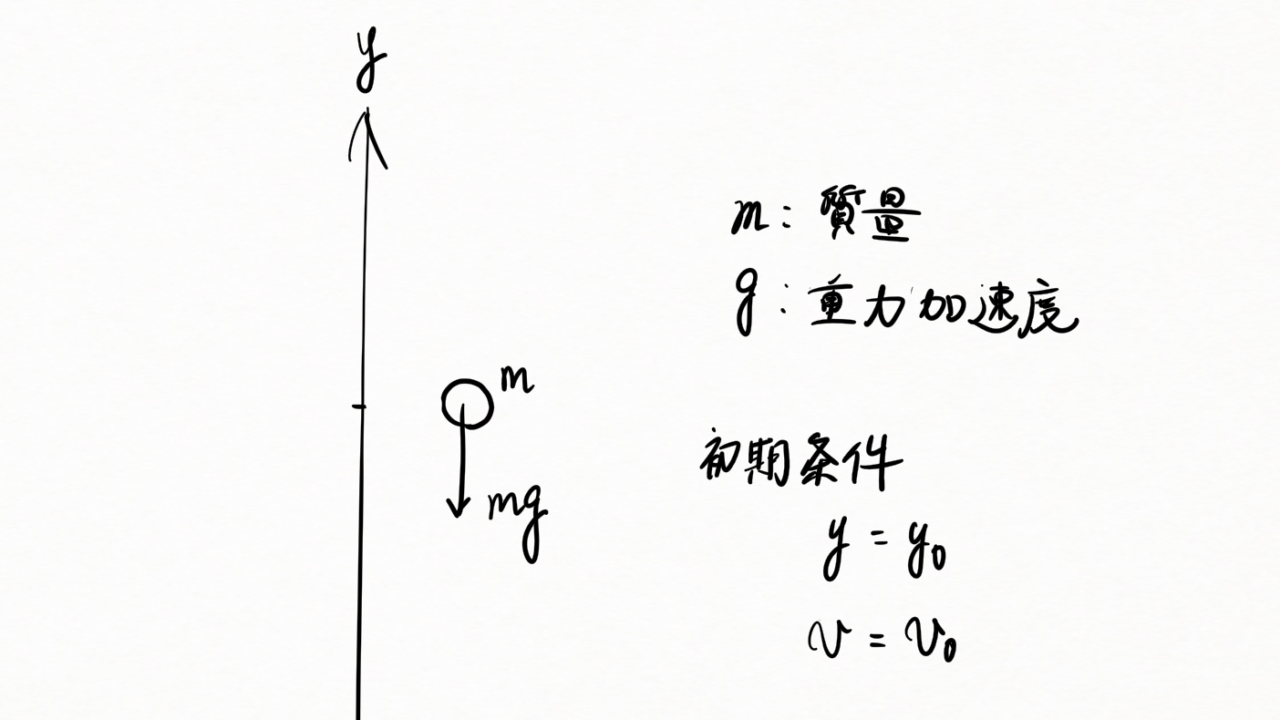 y
m : 質量
g : 重力加速度
m
mg
初期条件
y = y₀
v = v₀